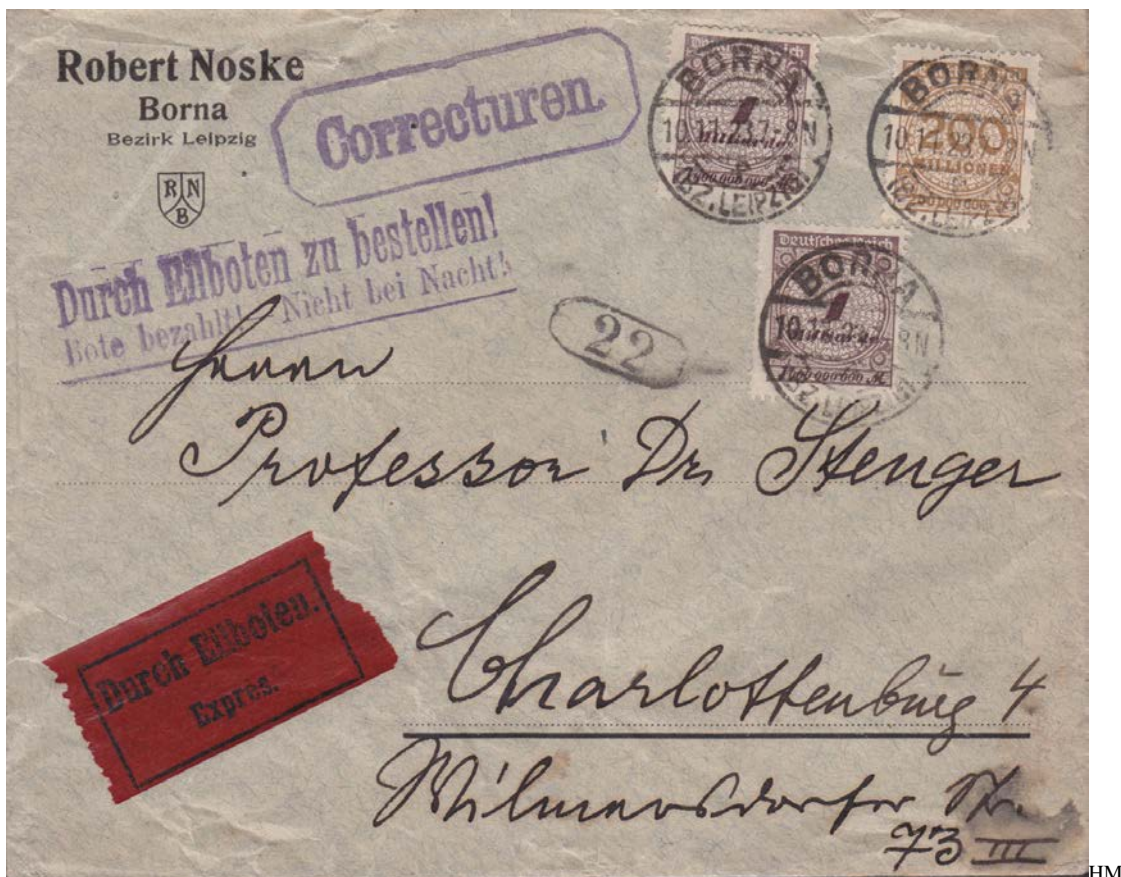 Robert Noske
Borna
Bezirk Leipzig
R N
B
Correcturen.
Durch Eilboten zu bestellen!
Bote bezahlt! Nicht bei Nacht!
Deutsches Reich
1
Milliarde
BORNA
10.11.23.7-8N
a
(BZ. LEIPZIG)
200
MILLIONEN
BORNA
(BZ. LEIPZIG)
Deutsches Reich
1
Milliarde
BORNA
(BZ. LEIPZIG)
22
Herrn
Professor Dr. Stenger
Durch Eilboten.
Expres.
Charlottenburg 4
Wilmersdorfer Str.
73 III
HM